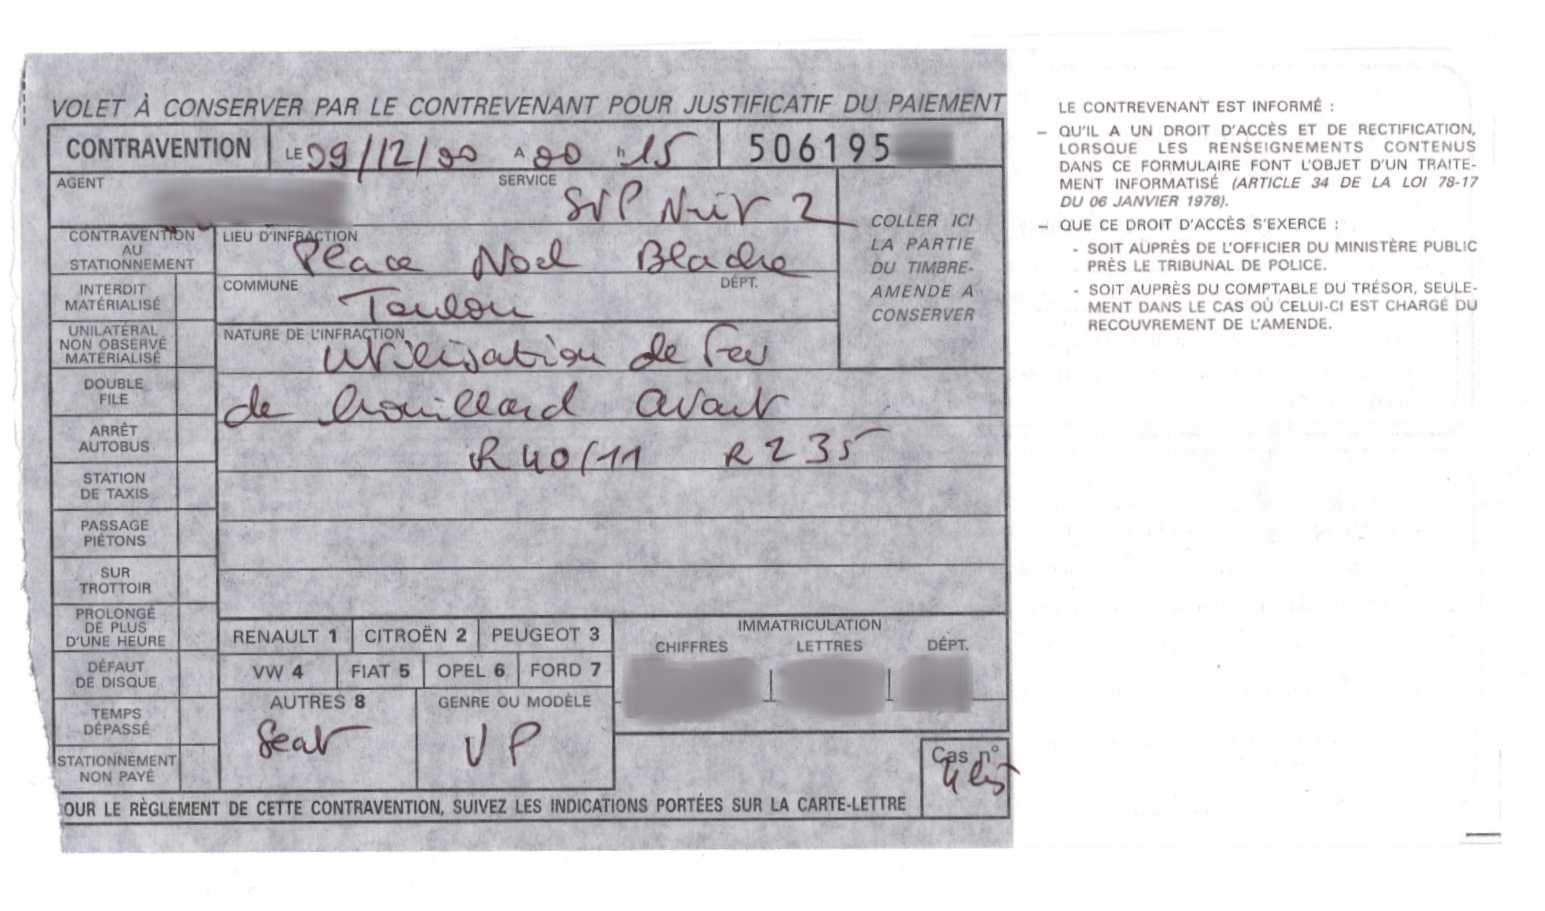 VOLET À CONSERVER PAR LE CONTREVENANT POUR JUSTIFICATIF DU PAIEMENT
CONTRAVENTION LE 09/12/00 A 00 h 15 506195
AGENT
SERVICE
SVP Nuit 2
COLLER ICI
LA PARTIE
DU TIMBRE-
AMENDE A
CONSERVER
CONTRAVENTION
AU
STATIONNEMENT
LIEU D'INFRACTION
Place Noël Blache
INTERDIT
MATÉRIALISÉ
COMMUNE
DÉPT.
Toulon
UNILATÉRAL
NON OBSERVÉ
MATÉRIALISÉ
NATURE DE L'INFRACTION
Utilisation de feu
de brouillard avant
R40/11 R235
DOUBLE
FILE
ARRÊT
AUTOBUS
STATION
DE TAXIS
PASSAGE
PIÉTONS
SUR
TROTTOIR
PROLONGÉ
DE PLUS
D'UNE HEURE
DÉFAUT
DE DISQUE
TEMPS
DÉPASSÉ
STATIONNEMENT
NON PAYÉ
RENAULT 1 CITROËN 2 PEUGEOT 3
VW 4 FIAT 5 OPEL 6 FORD 7
AUTRES 8
Seat
GENRE OU MODÈLE
VP
IMMATRICULATION
CHIFFRES LETTRES DÉPT.
Cas n°
OUR LE RÈGLEMENT DE CETTE CONTRAVENTION, SUIVEZ LES INDICATIONS PORTÉES SUR LA CARTE-LETTRE
LE CONTREVENANT EST INFORMÉ :
– QU'IL A UN DROIT D'ACCÈS ET DE RECTIFICATION,
LORSQUE LES RENSEIGNEMENTS CONTENUS
DANS CE FORMULAIRE FONT L'OBJET D'UN TRAITE-
MENT INFORMATISÉ (ARTICLE 34 DE LA LOI 78-17
DU 06 JANVIER 1978).
– QUE CE DROIT D'ACCÈS S'EXERCE :
- SOIT AUPRÈS DE L'OFFICIER DU MINISTÈRE PUBLIC
PRÈS LE TRIBUNAL DE POLICE.
- SOIT AUPRÈS DU COMPTABLE DU TRÉSOR, SEULE-
MENT DANS LE CAS OÙ CELUI-CI EST CHARGÉ DU
RECOUVREMENT DE L'AMENDE.